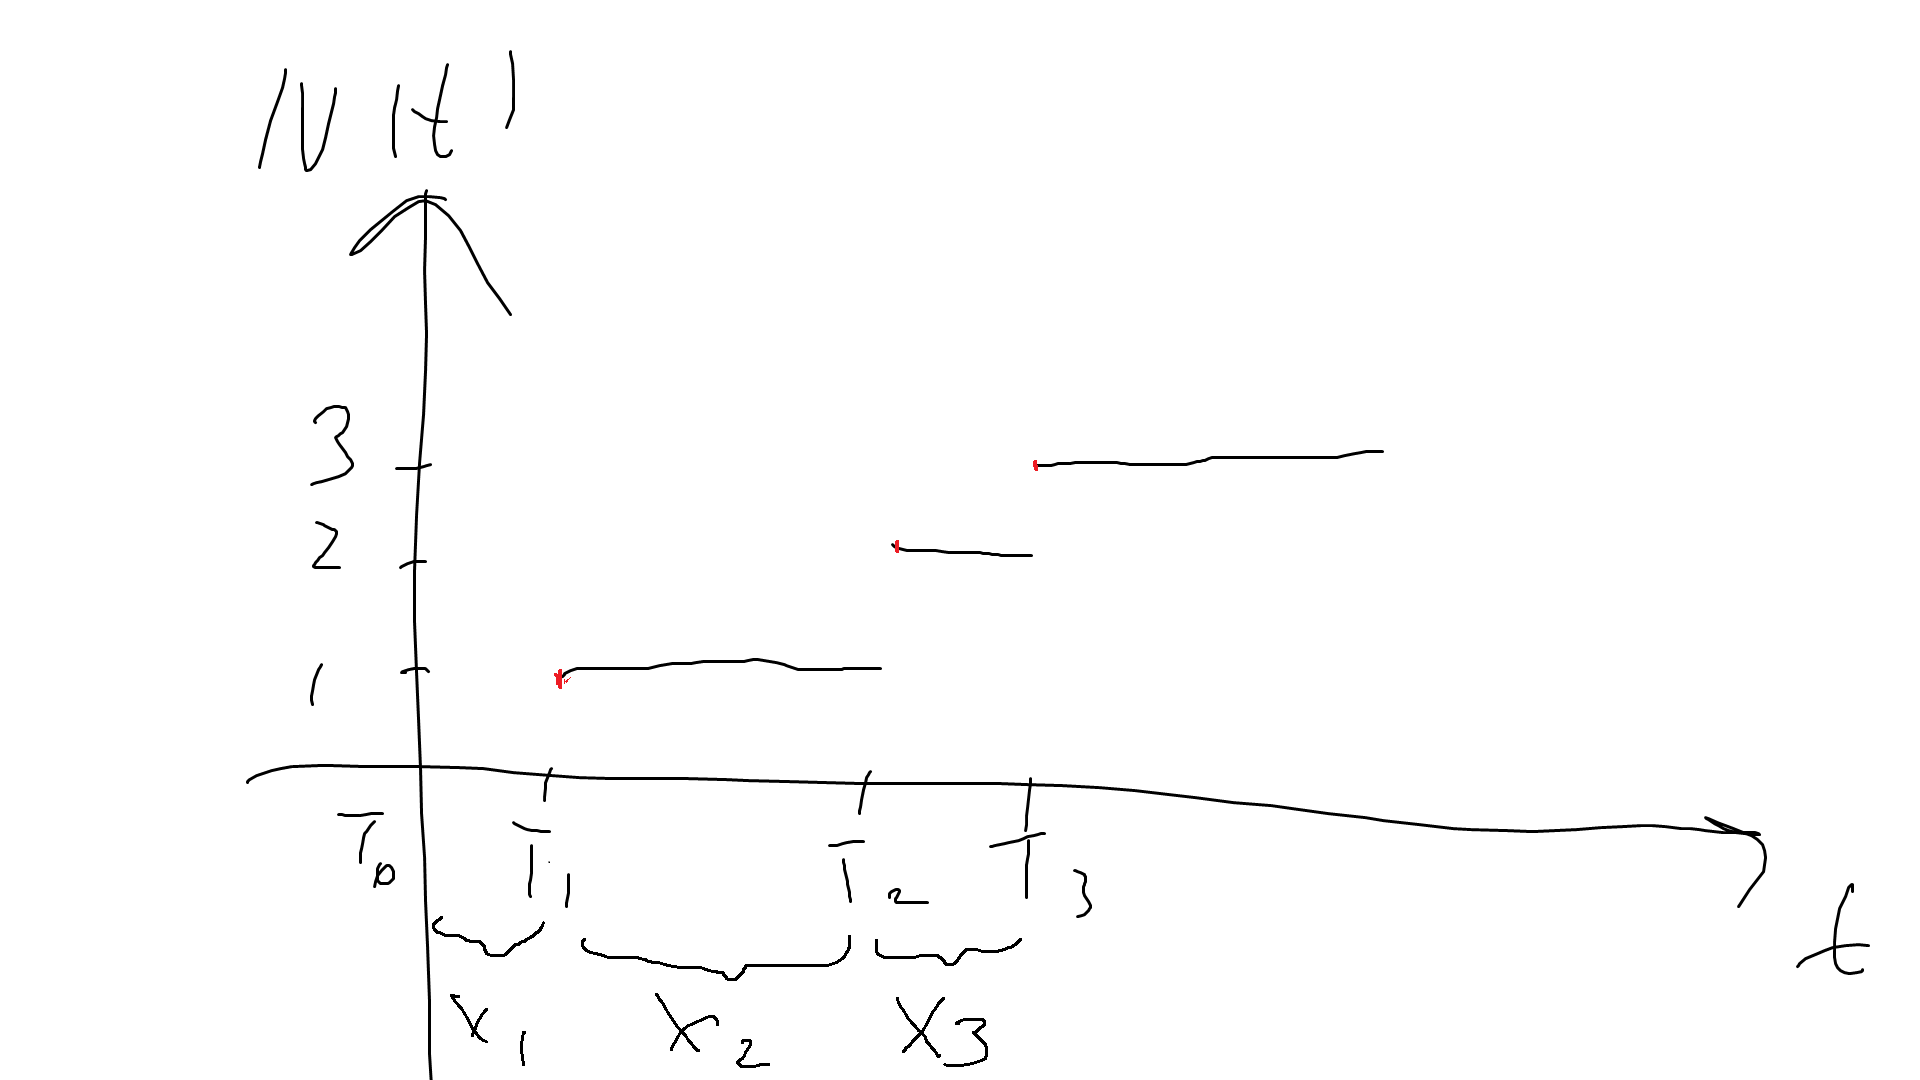 N(t)
3
2
1
T0 T1 T2 T3
t
X1 X2 X3